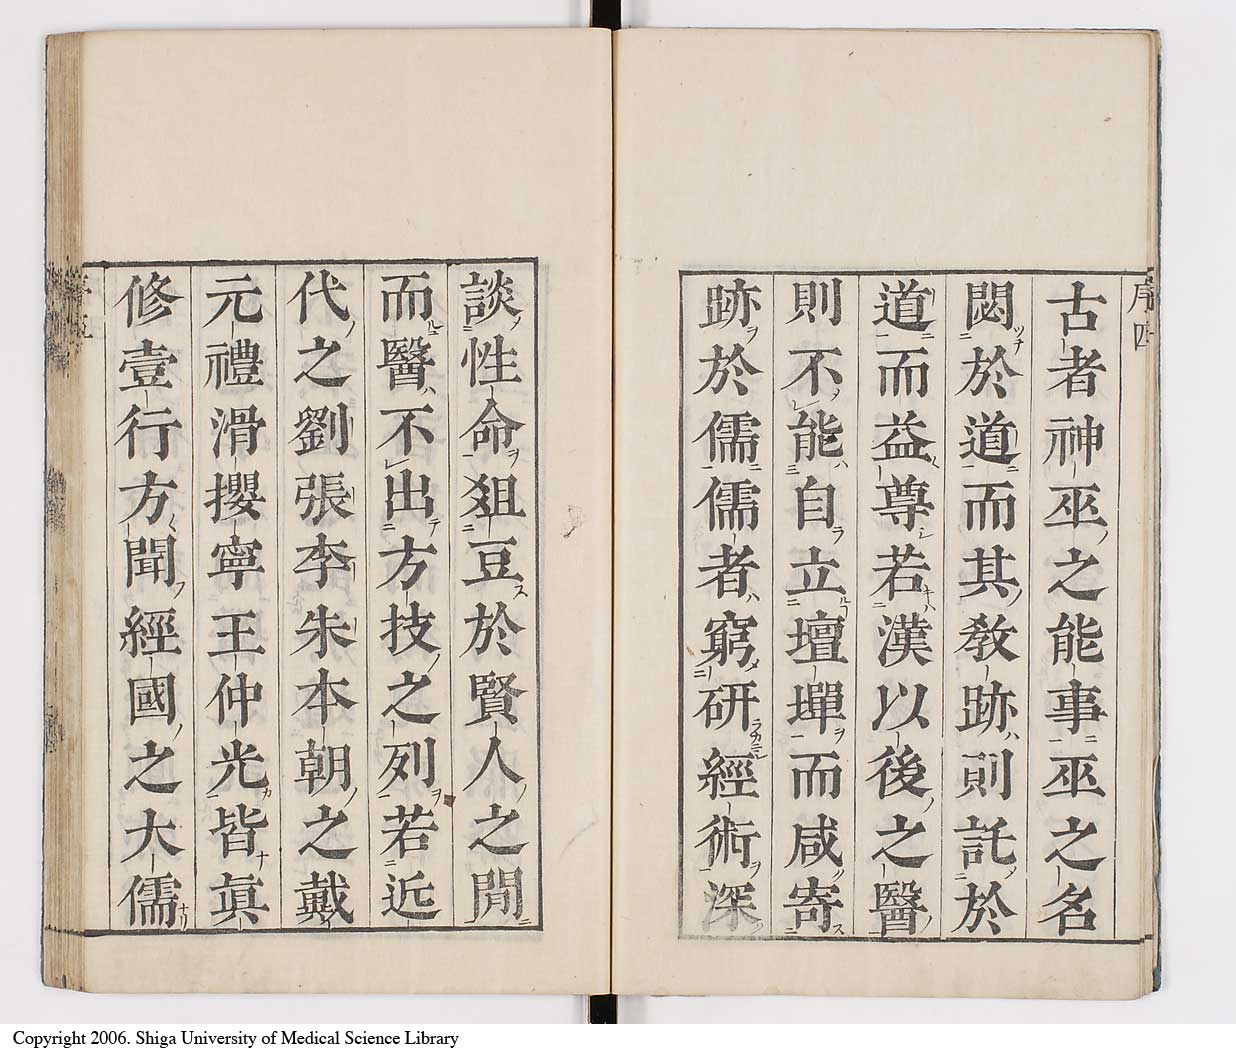 序四
古者神巫之能事巫之名
閟於道而其敎跡則託於
道而益尊若漢以後之醫
則不能自立壇墠而咸寄
跡於儒儒者窮研經術深
談性命俎豆於賢人之閒
而醫不出方技之列若近
代之劉張李朱本朝之戴
元禮滑攖寧王仲光皆眞
修壹行方聞經國之大儒
Copyright 2006. Shiga University of Medical Science Library